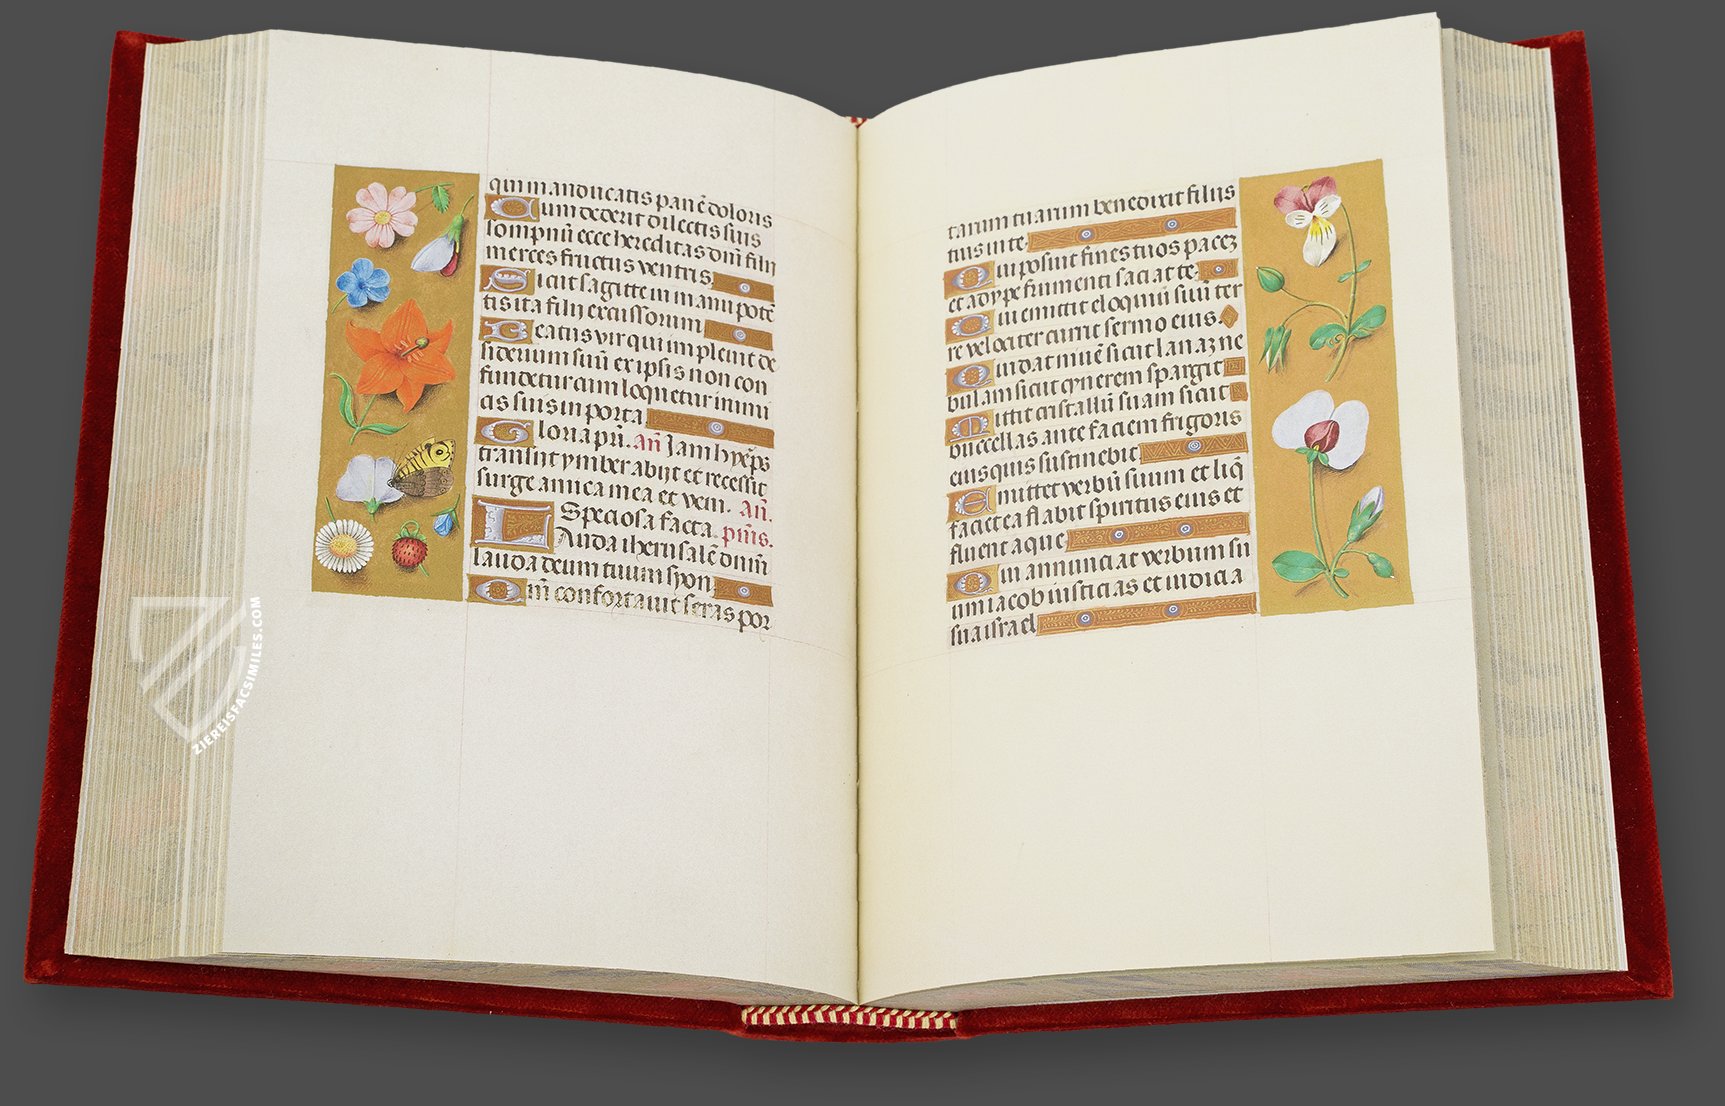 qui manducatis panē doloris
Cum dederit dilectis suis
sompnū ecce hereditas dnī filij
merces fructus ventris
Sicut sagitte in manu potē
tis ita filij excussorum
Beatus vir qui impleuit de
siderium suū ex ipsis non con
fundetur cum loquetur inimi
cis suis in porta
Gloria pr̄i. Añ Jam hyēps
transijt ymber abijt et recessit
surge amica mea et veni. Añ.
Speciosa facta. psm̄s.
Lauda iherusalē dominū
lauda deum tuum syon
Qm̄ confortauit seras por
tarum tuarum benedixit filijs
tuis in te
Qui posuit fines tuos pacez
et adype frumenti saciat te
Qui emittit eloquiū suū ter
re velociter currit sermo eius.
Qui dat niuē sicut lanaz ne
bulam sicut cynerem spargit
Mittit cristallū suam sicut
buccellas ante faciem frigoris
eius quis sustinebit
Emittet verbū suum et liq̄
faciet ea flabit spiritus eius et
fluent aque
Qui annunciat verbum su
um iacob iusticias et iudicia
sua israel
ZIEREISFACSIMILES.COM